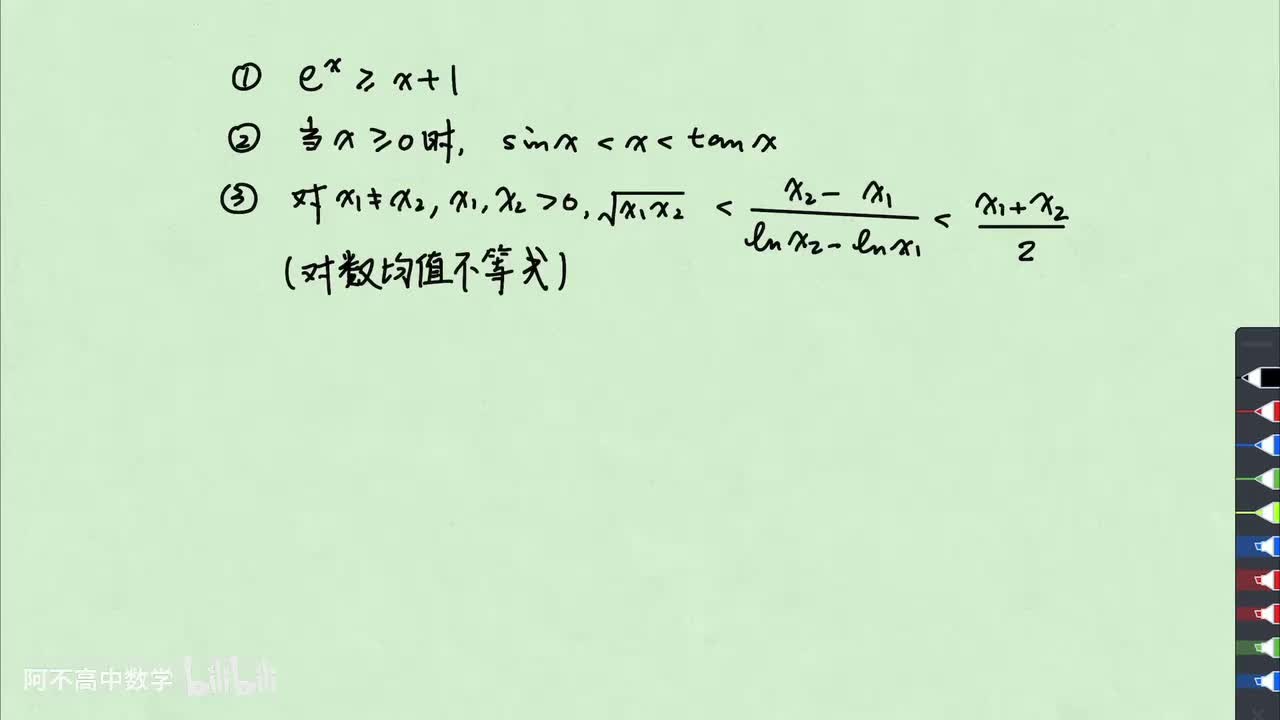 ① eˣ ≥ x+1
② 当 x ≥0时, sinx < x < tanx
③ 对 x₁≠x₂, x₁, x₂ >0, √x₁x₂ < (x₂ - x₁)/(lnx₂ - lnx₁) < (x₁+x₂)/2
(对数均值不等式)
阿不高中数学 bilibili